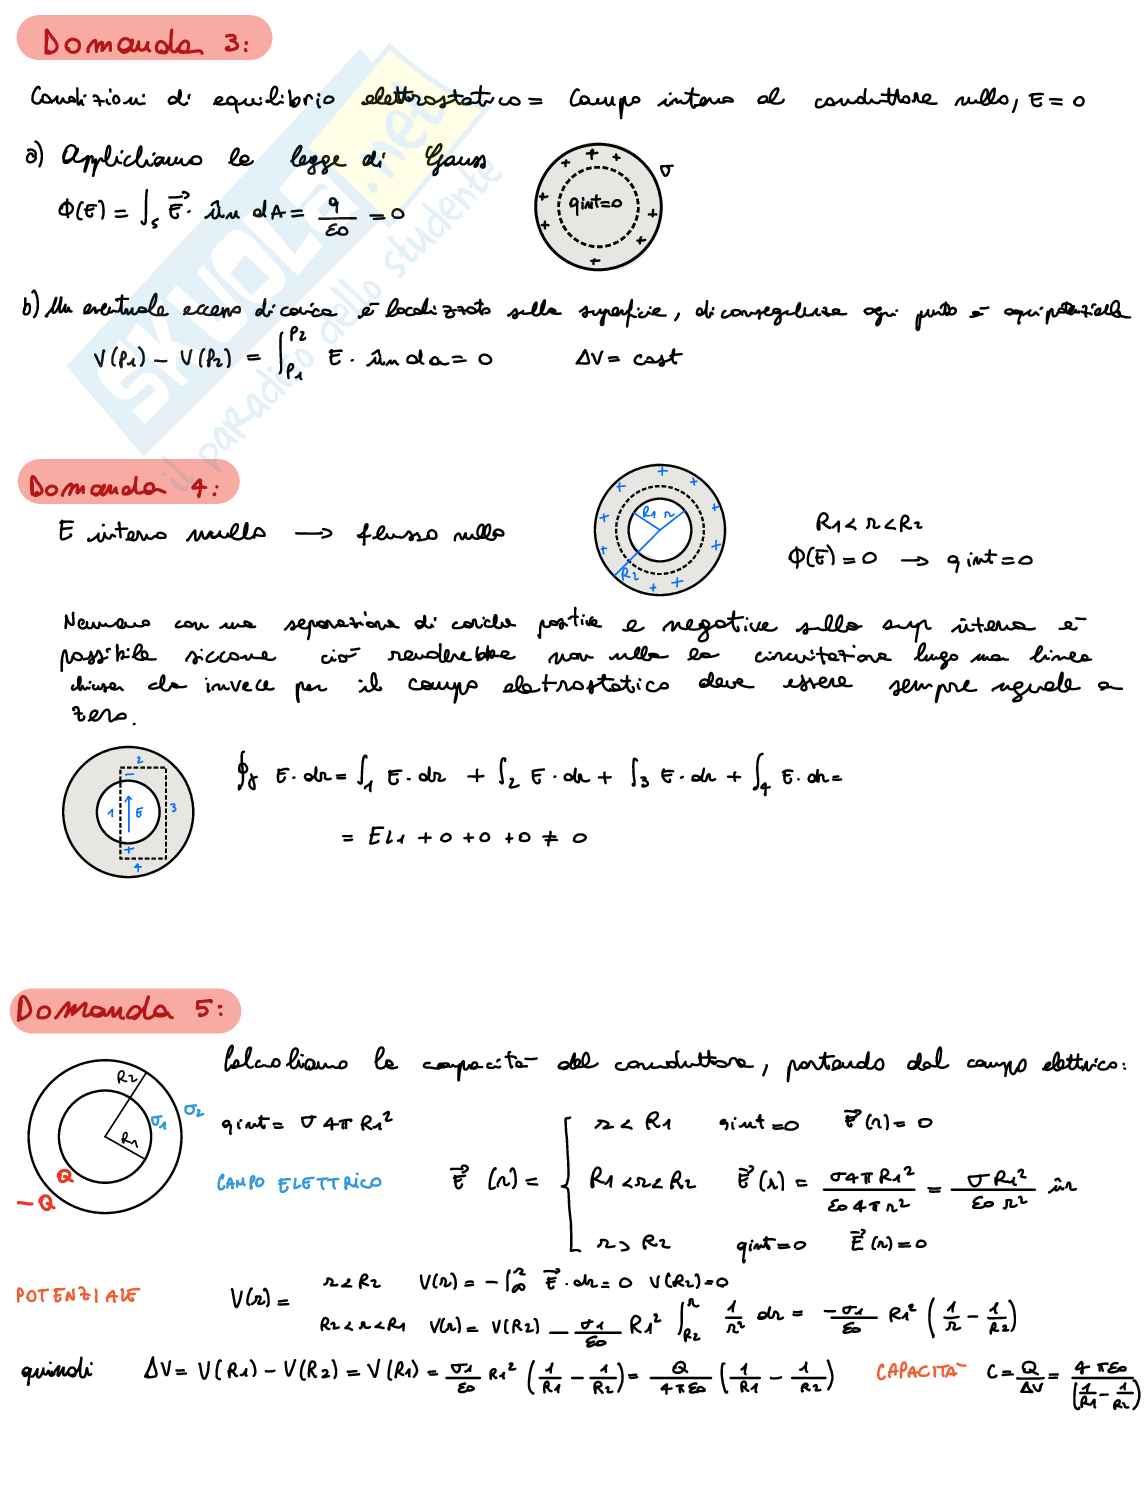 Domanda 3:
Condizioni di equilibrio elettrostatico = Campo interno al conduttore nullo, E = 0
a) Applichiamo la legge di Gauss
Φ(E) = ∫s E⃗ · ûn dA = q/ε0 = 0
qint=0
σ
b) Un eventuale eccesso di carica è localizzato sulla superficie, di conseguenza ogni punto è equipotenziale
V(P1) - V(P2) = ∫P1 P2 E · ûn da = 0 ΔV = cost
SKUOLA.net
il paradiso dello studente
Domanda 4:
E interno nullo → flusso nullo
R1 r
R2
R1 < r < R2
Φ(E) = 0 → qint = 0
Nemmeno con una separazione di cariche positive e negative sulla sup interna è
possibile siccome ciò renderebbe non nulla la circuitazione lungo una linea
chiusa che invece per il campo elettrostatico deve essere sempre uguale a
zero.
2
1 E 3
4
∮γ E · dr = ∫1 E · dr + ∫2 E · dr + ∫3 E · dr + ∫4 E · dr =
= EL1 + 0 + 0 + 0 ≠ 0
Domanda 5:
Calcoliamo la capacità del conduttore, partendo dal campo elettrico:
R2
R1
σ1 σ2
Q
-Q
qint = σ 4π R1²
CAMPO ELETTRICO
E⃗ (r) =
r < R1 qint = 0 E⃗(r) = 0
R1 < r < R2 E⃗(r) = σ4πR1² / ε0 4π r² = σ R1² / ε0 r² ûr
r > R2 qint = 0 E⃗(r) = 0
POTENZIALE
V(r) =
r < R2 V(r) = - ∫∞ r E⃗ · dr = 0 V(R2) = 0
R2 < r < R1 V(r) = V(R2) - σ1/ε0 R1² ∫R2 r 1/r² dr = -σ1/ε0 R1² (1/r - 1/R2)
quindi ΔV = V(R1) - V(R2) = V(R1) = σ1/ε0 R1² (1/R1 - 1/R2) = Q/4πε0 (1/R1 - 1/R2) CAPACITÀ C = Q/ΔV = 4πε0/(1/R1 - 1/R2)